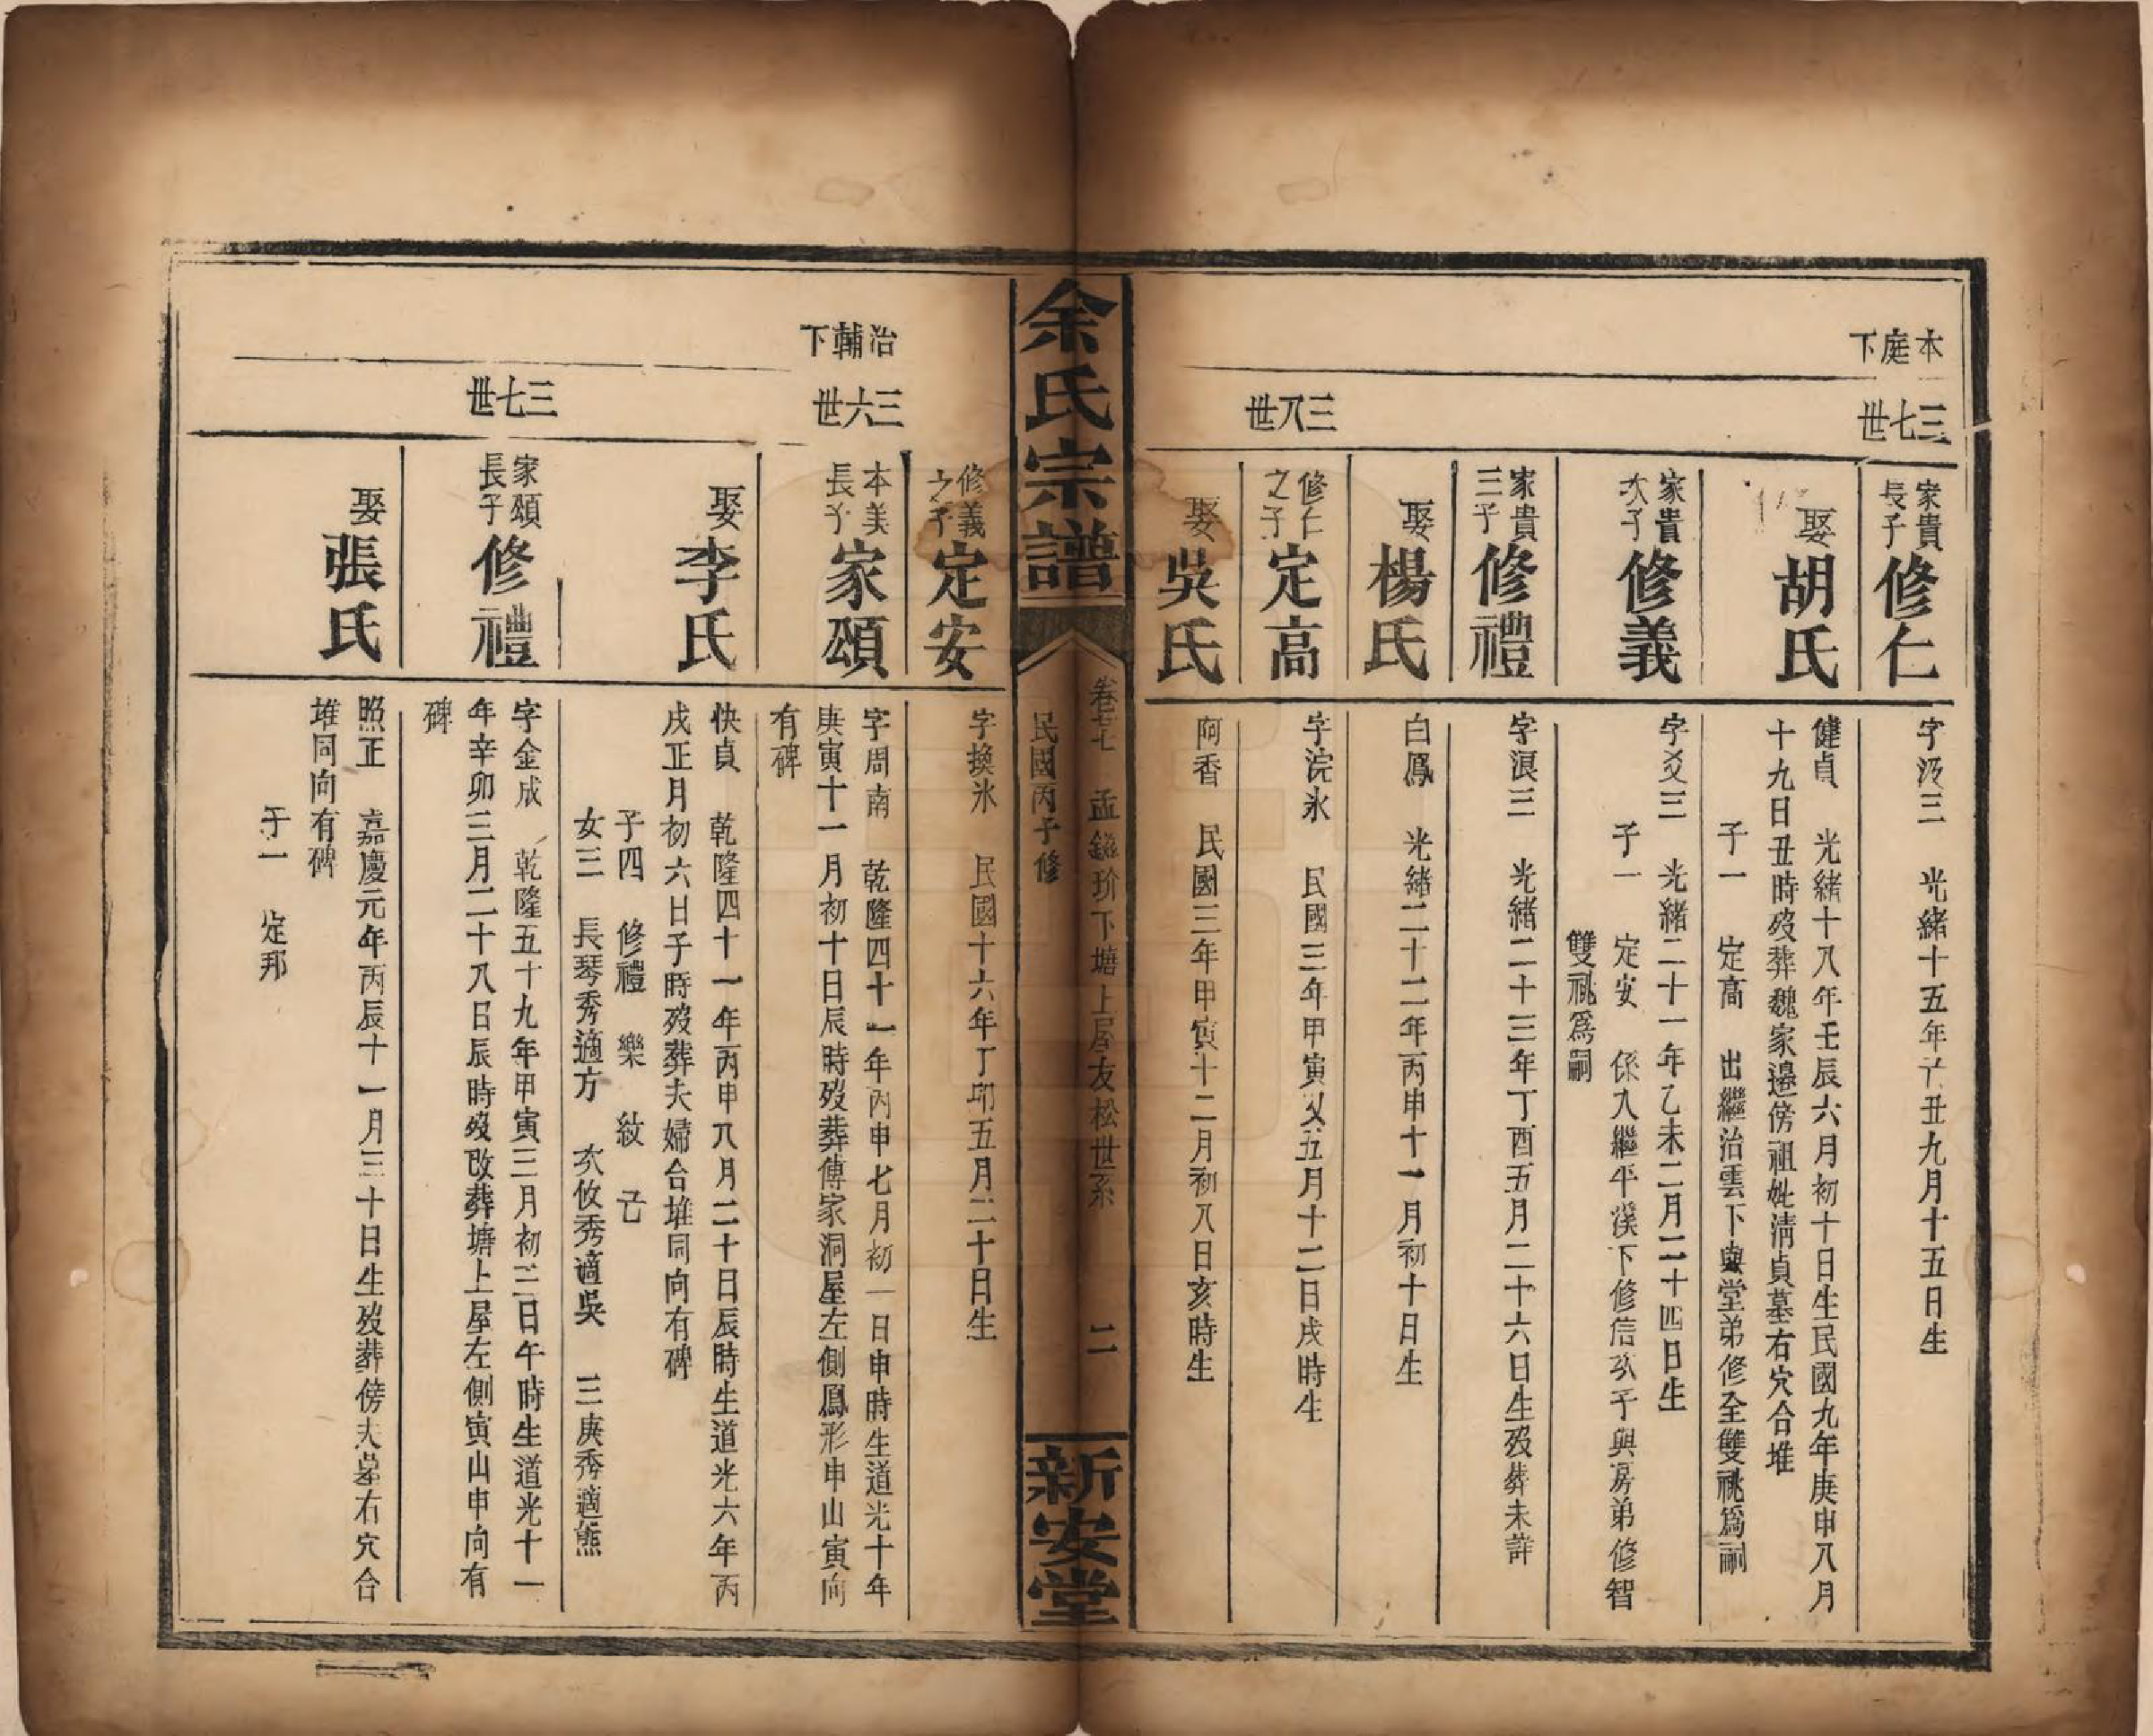 本庭下
三七世
家貴長子 修仁
字汲三 光緒十五年丑九月十五日生
娶 胡氏
健貞 光緒十八年壬辰六月初十日生民國九年庚申八月
十九日丑時歿葬魏家邉傍祖妣清貞墓右穴合堆
子一 定高 出繼治雲下與堂弟修全雙祧為嗣
家貴次子 修義
字爻三 光緒二十一年乙未二月二十四日生
子一 定安 係入繼平溪下修信次子與房弟修智
雙祧為嗣
家貴三子 修禮
字浪三 光緒二十三年丁酉五月二十六日生歿葬未詳
娶 楊氏
白鳳 光緒二十二年丙申十一月初十日生
三八世
修仁之子 定高
字浣氷 民國三年甲寅又五月十二日戌時生
娶 吳氏
阿香 民國三年甲寅十二月初八日亥時生
余氏宗譜
卷七七 孟玠下塘上屋友松世系 二
民國丙子修
新安堂
修義之子 定安
字換氷 民國十六年丁卯五月二十日生
治輔下
三六世
本美長子 家頌
字周南 乾隆四十一年丙申七月初一日申時生道光十年
庚寅十一月初十日辰時歿葬傅家洞屋左側鳳形申山寅向
有碑
娶 李氏
快貞 乾隆四十一年丙申八月二十日辰時生道光六年丙
戌正月初六日子時歿葬夫婦合堆同向有碑
子四 修禮 樂 紋 亡
女三 長琴秀適方 次攸秀適吳 三庚秀適熊
三七世
家頌長子 修禮
字金成 乾隆五十九年甲寅三月初三日午時生道光十一
年辛卯三月二十八日辰時歿改葬塘上屋左側寅山申向有
碑
娶 張氏
照正 嘉慶元年丙辰十一月三十日生歿葬傍夫塋右穴合
堆同向有碑
子一 定邦